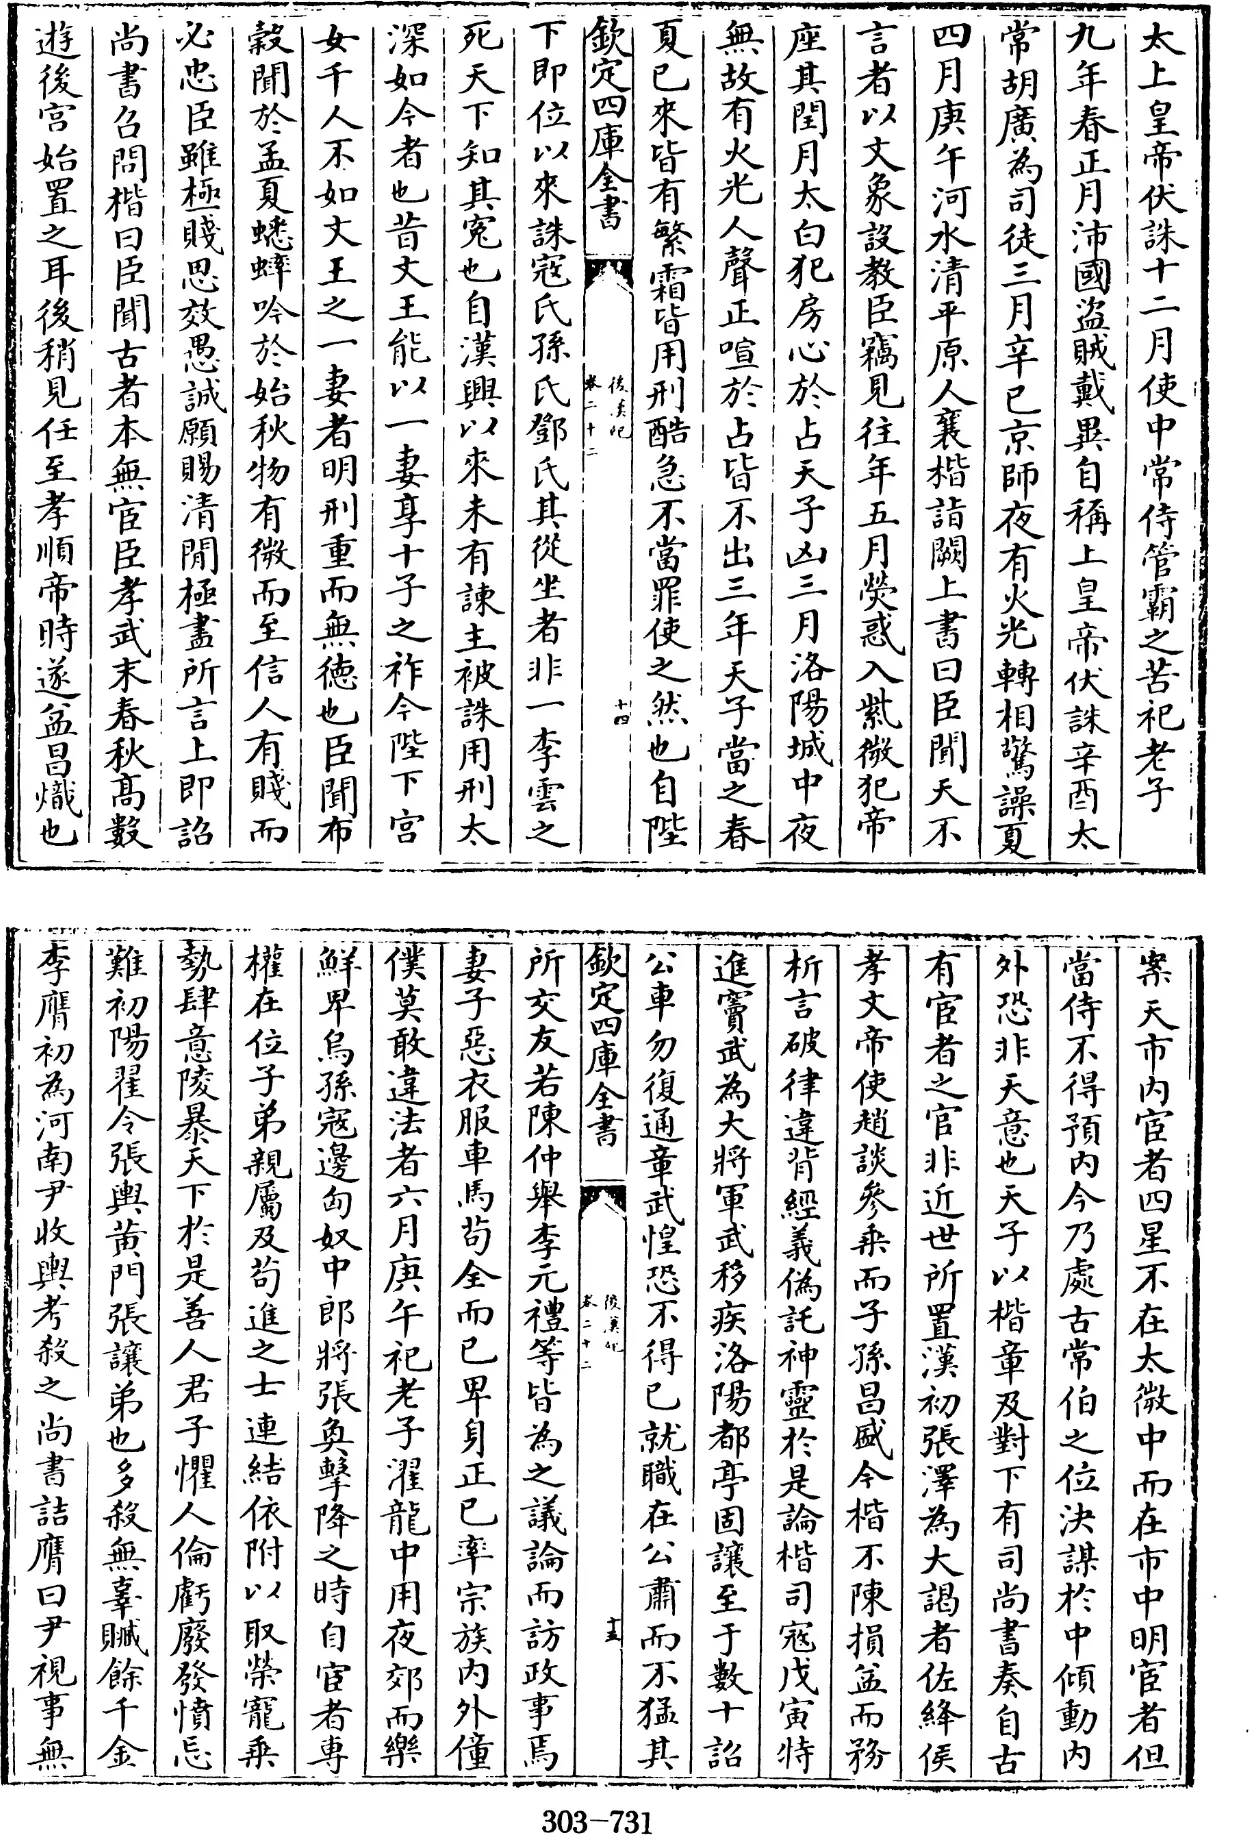 太上皇帝伏誅十二月使中常侍管霸之苦祀老子
九年春正月沛國盜賊戴異自稱上皇帝伏誅辛酉太
常胡廣為司徒三月辛巳京師夜有火光轉相驚譟夏
四月庚午河水清平原人襄楷詣闕上書曰臣聞天不
言者以文象設教臣竊見往年五月熒惑入紫微犯帝
座其閏月太白犯房心於占天子凶三月洛陽城中夜
無故有火光人聲正喧於占皆不出三年天子當之春
夏已來皆有繁霜皆用刑酷急不當罪使之然也自陛
欽定四庫全書
後漢紀
卷二十二
十四
下即位以來誅寇氏孫氏鄧氏其從坐者非一李雲之
死天下知其寃也自漢興以來未有諫主被誅用刑太
深如今者也昔文王能以一妻享十子之祚今陛下宮
女千人不如文王之一妻者明刑重而無德也臣聞布
穀聞於孟夏蟋蟀吟於始秋物有微而至信人有賤而
必忠臣雖極賤思效愚誠願賜清閒極盡所言上即詔
尚書召問楷曰臣聞古者本無宦臣孝武末春秋高數
遊後宮始置之耳後稍見任至孝順帝時遂益昌熾也
案天市内宦者四星不在太微中而在市中明宦者但
當侍不得預内今乃處古常伯之位決謀於中傾動内
外恐非天意也天子以楷章及對下有司尚書奏自古
有宦者之官非近世所置漢初張澤為大謁者佐絳侯
孝文帝使趙談參乘而子孫昌盛今楷不陳損益而務
析言破律違背經義偽託神靈於是論楷司寇戊寅特
進竇武為大將軍武移疾洛陽都亭固讓至于數十詔
公車勿復通章武惶恐不得已就職在公肅而不猛其
欽定四庫全書
後漢紀
卷二十二
十五
所交友若陳仲舉李元禮等皆為之議論而訪政事焉
妻子惡衣服車馬苟全而已卑身正己率宗族内外僮
僕莫敢違法者六月庚午祀老子濯龍中用夜郊而樂
鮮卑烏孫寇邊匈奴中郎將張奐擊降之時自宦者專
權在位子弟親屬及苟進之士連結依附以取榮寵乘
勢肆意陵暴天下於是善人君子懼人倫虧廢發憤忘
難初陽翟令張輿黄門張讓弟也多殺無辜贓餘千金
李膺初為河南尹收輿考殺之尚書詰膺曰尹視事無
303-731